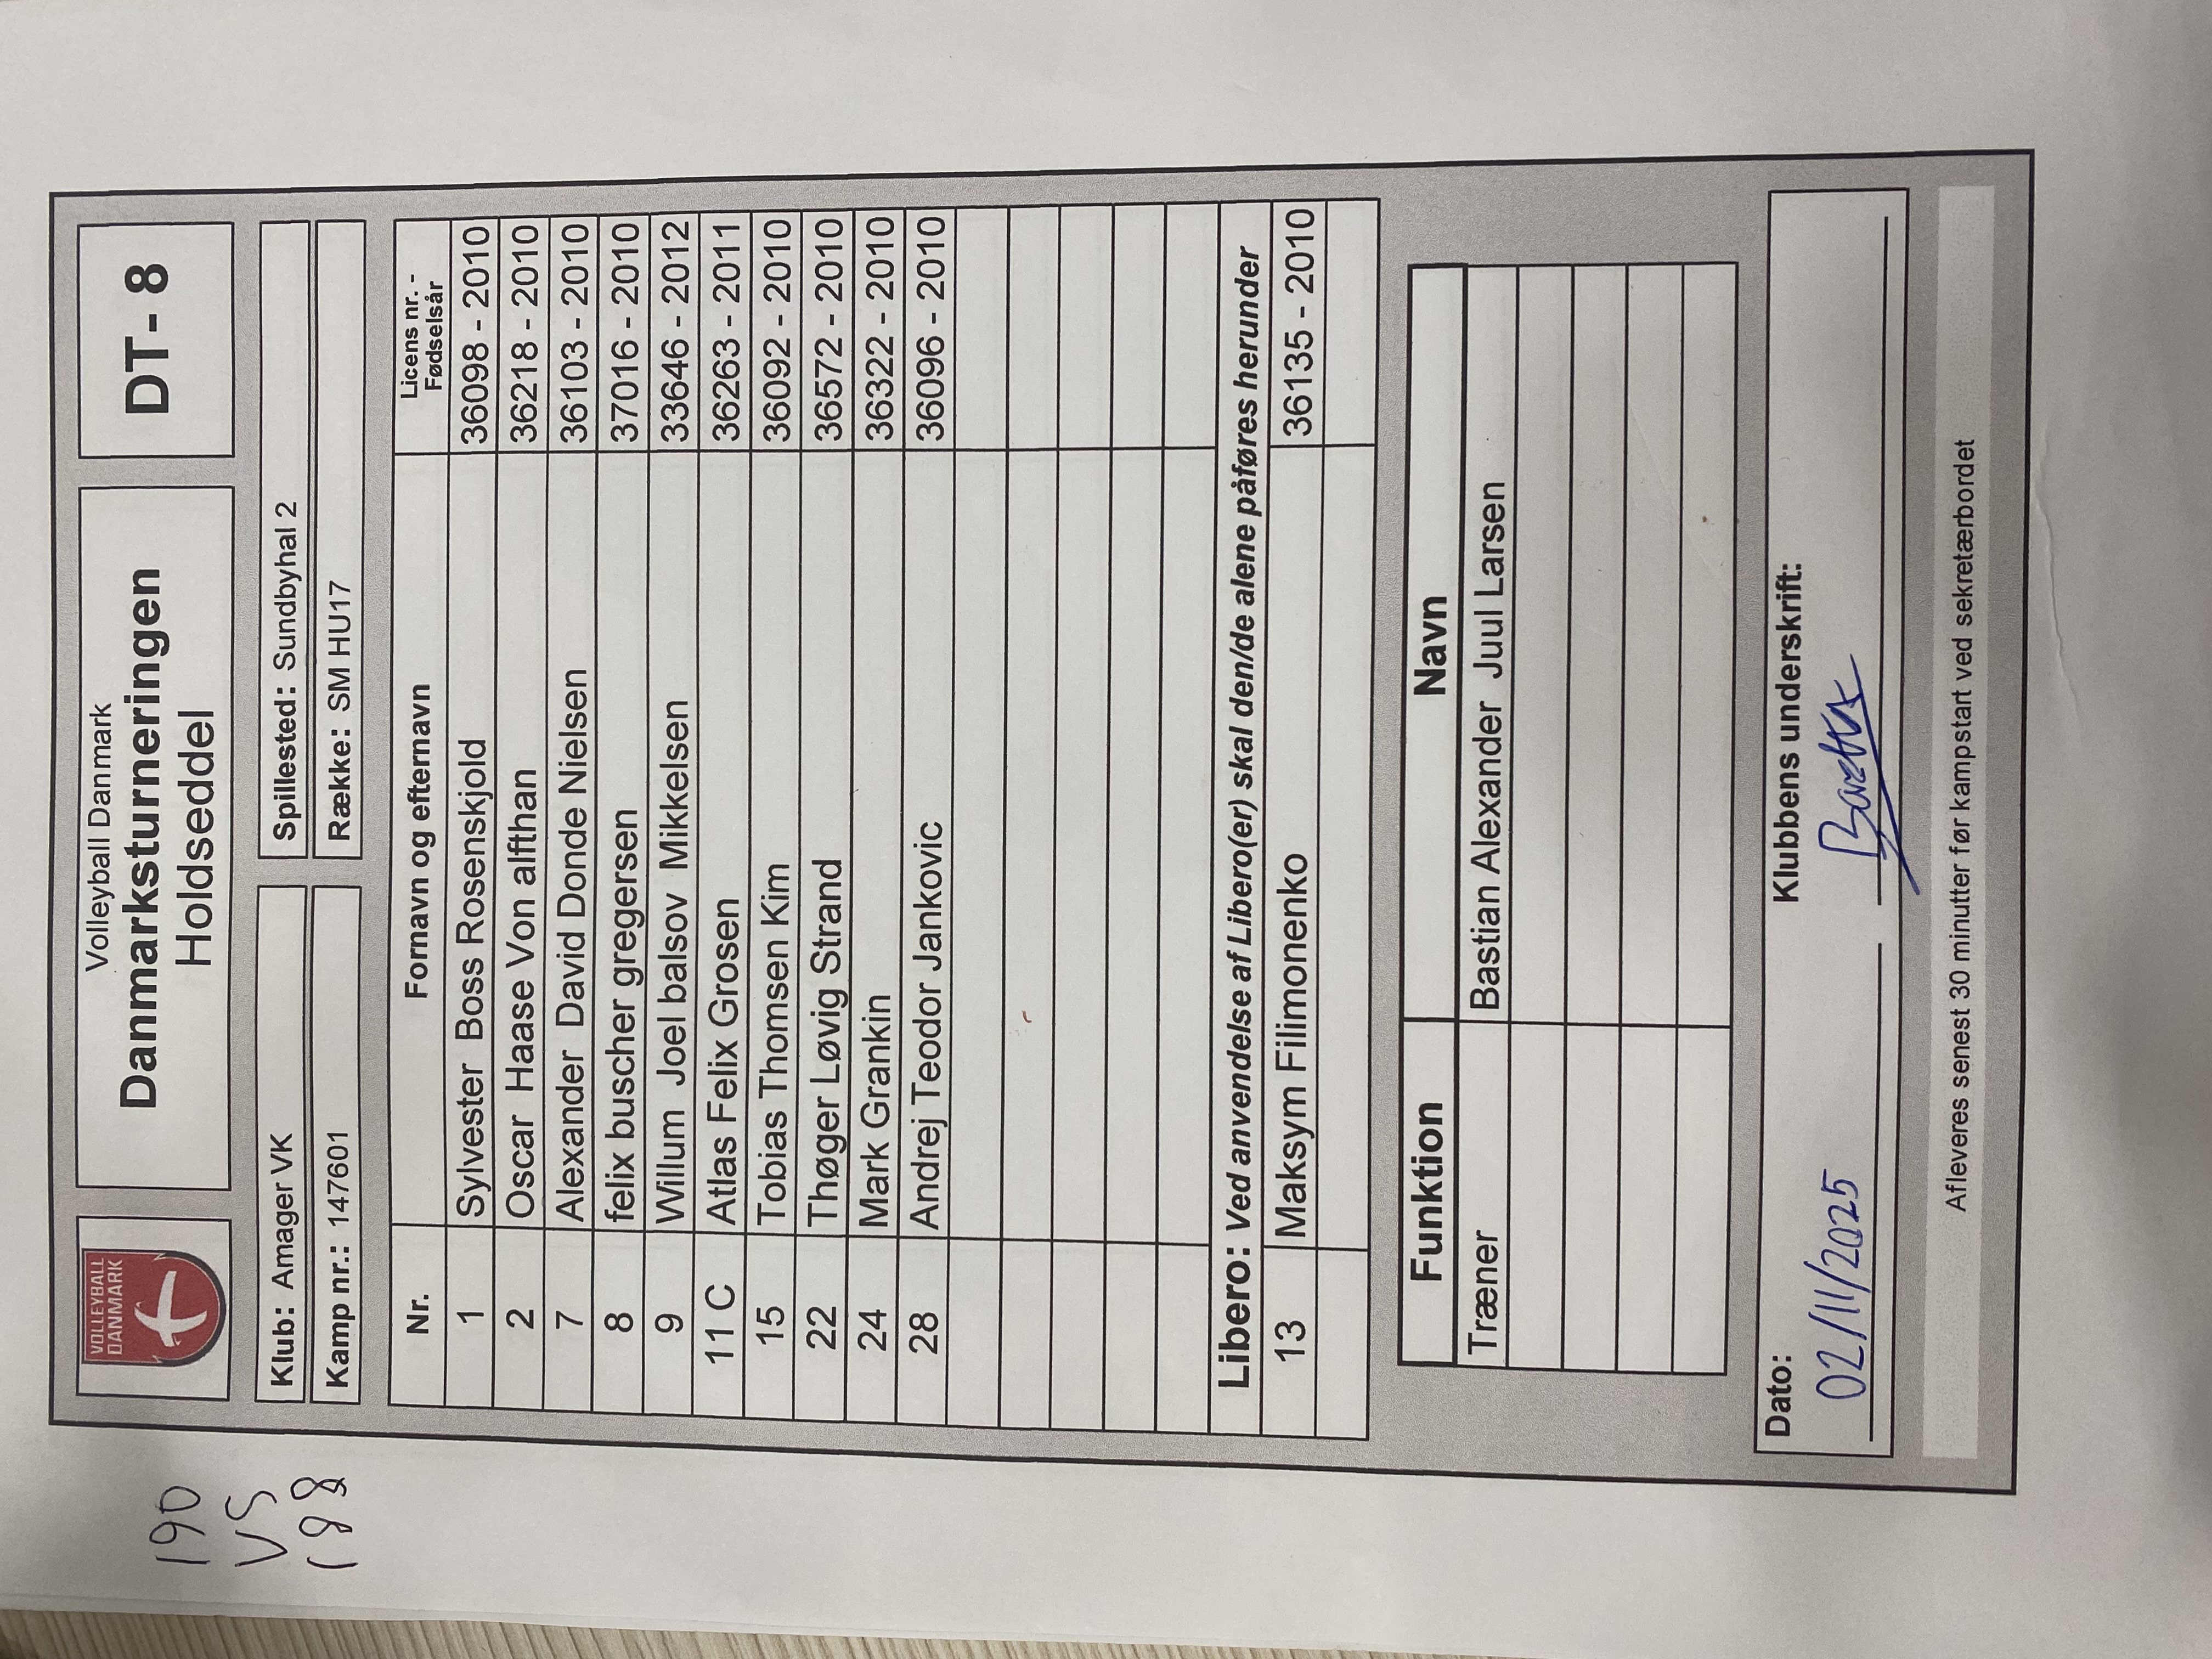 190
VS
198
VOLLEYBALL
DANMARK
Volleyball Danmark
Danmarksturneringen
Holdseddel
DT - 8
Klub: Amager VK
Spillested: Sundbyhal 2
Kamp nr.: 147601
Række: SM HU17
Nr. Fornavn og efternavn Licens nr. - Fødselsår
1 Sylvester Boss Rosenskjold 36098 - 2010
2 Oscar Haase Von alfthan 36218 - 2010
7 Alexander David Donde Nielsen 36103 - 2010
8 felix buscher gregersen 37016 - 2010
9 Willum Joel balsov Mikkelsen 33646 - 2012
11 C Atlas Felix Grosen 36263 - 2011
15 Tobias Thomsen Kim 36092 - 2010
22 Thøger Løvig Strand 36572 - 2010
24 Mark Grankin 36322 - 2010
28 Andrej Teodor Jankovic 36096 - 2010
Libero: Ved anvendelse af Libero(er) skal den/de alene påføres herunder
13 Maksym Filimonenko 36135 - 2010
Funktion Navn
Træner Bastian Alexander Juul Larsen
Dato: Klubbens underskrift:
02/11/2025
Afleveres senest 30 minutter før kampstart ved sekretærbordet